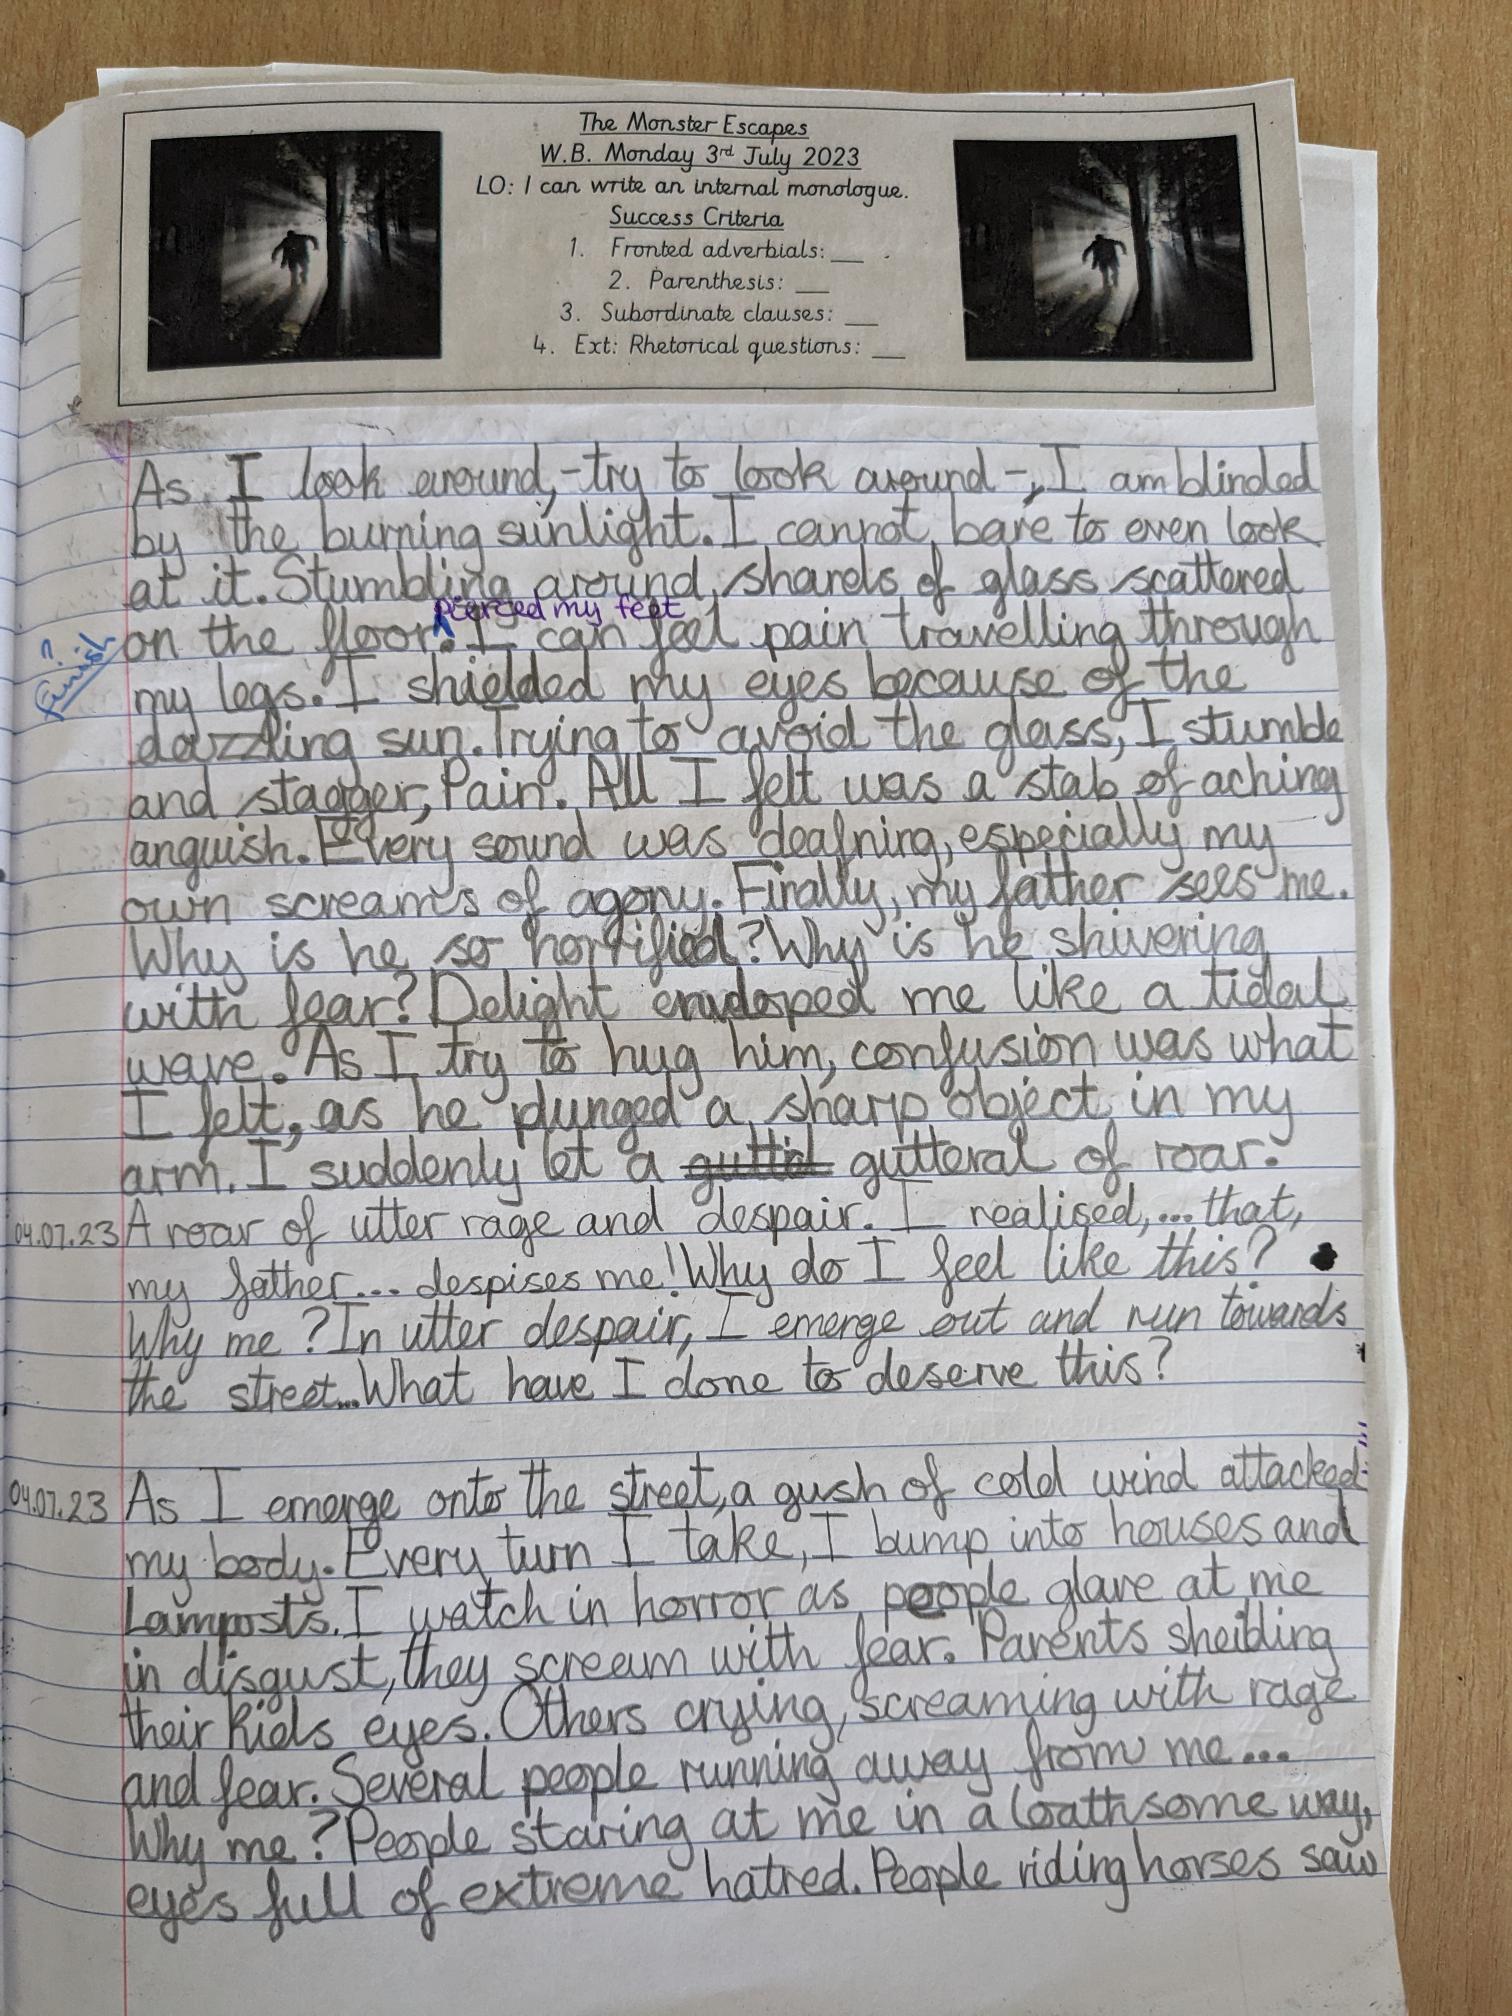 The Monster Escapes
W.B. Monday 3rd July 2023
LO: I can write an internal monologue.
Success Criteria
1. Fronted adverbials: __ .
2. Parenthesis: __
3. Subordinate clauses: __
4. Ext: Rhetorical questions: __
As I look around, -try to look around-, I am blinded
by the burning sunlight. I cannot bare to even look
at it. Stumbling around, shards of glass scattered
pierced my feet
on the floor. I can feel pain travelling through
? Finish
my legs. I shielded my eyes because of the
dazzling sun. Trying to avoid the glass, I stumble
and stagger, Pain. All I felt was a stab of aching
anguish. Every sound was deafning, especially my
own screams of agony. Finally, my father sees me.
Why is he so horrified? Why is he shivering
with fear? Delight enveloped me like a tidal
wave. As I try to hug him, confusion was what
I felt, as he plunged a sharp object in my
arm. I suddenly let a gutteral of roar.
04.07.23 A roar of utter rage and despair. I realised,... that,
my father... despises me! Why do I feel like this?
Why me? In utter despair, I emerge out and run towards
the street... What have I done to deserve this?
04.07.23 As I emerge onto the street, a gush of cold wind attacked
my body. Every turn I take, I bump into houses and
Lamposts. I watch in horror as people glare at me
in disgust, they scream with fear. Parents sheilding
their kids eyes. Others crying, screaming with rage
and fear. Several people running away from me...
Why me? People staring at me in a loathsome way,
eyes full of extreme hatred. People riding horses saw